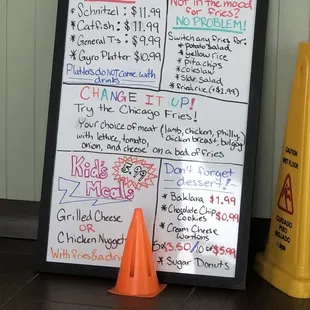 * Schnitzel: $11.99
* Catfish: $11.99
* General Ts: $9.99
* Gyro Platter: $10.99
Platters do NOT come with
drinks
Not in the mood
for fries?
NO PROBLEM!
Switch any fries for:
* potato salad
* yellow rice
* pita chips
* coleslaw
* side salad
* fried rice (+$1.99)
CHANGE IT UP!
Try the Chicago Fries!
Your choice of meat (lamb, chicken, philly,
chicken breast, bulgogi)
with lettuce, tomato,
onion, and cheese on a bed of fries
Kid's
Meal
$5.99
Grilled Cheese
OR
Chicken Nuggets
With fries & drink
Don't forget
dessert!
* Baklava $1.99
* Chocolate Chip
Cookies $0.99
* Cream Cheese
Wontons
$3.50/10 $5.99
* Sugar Donuts
CAUTION
WET FLOOR
CUIDADO
PISO
MOJADO